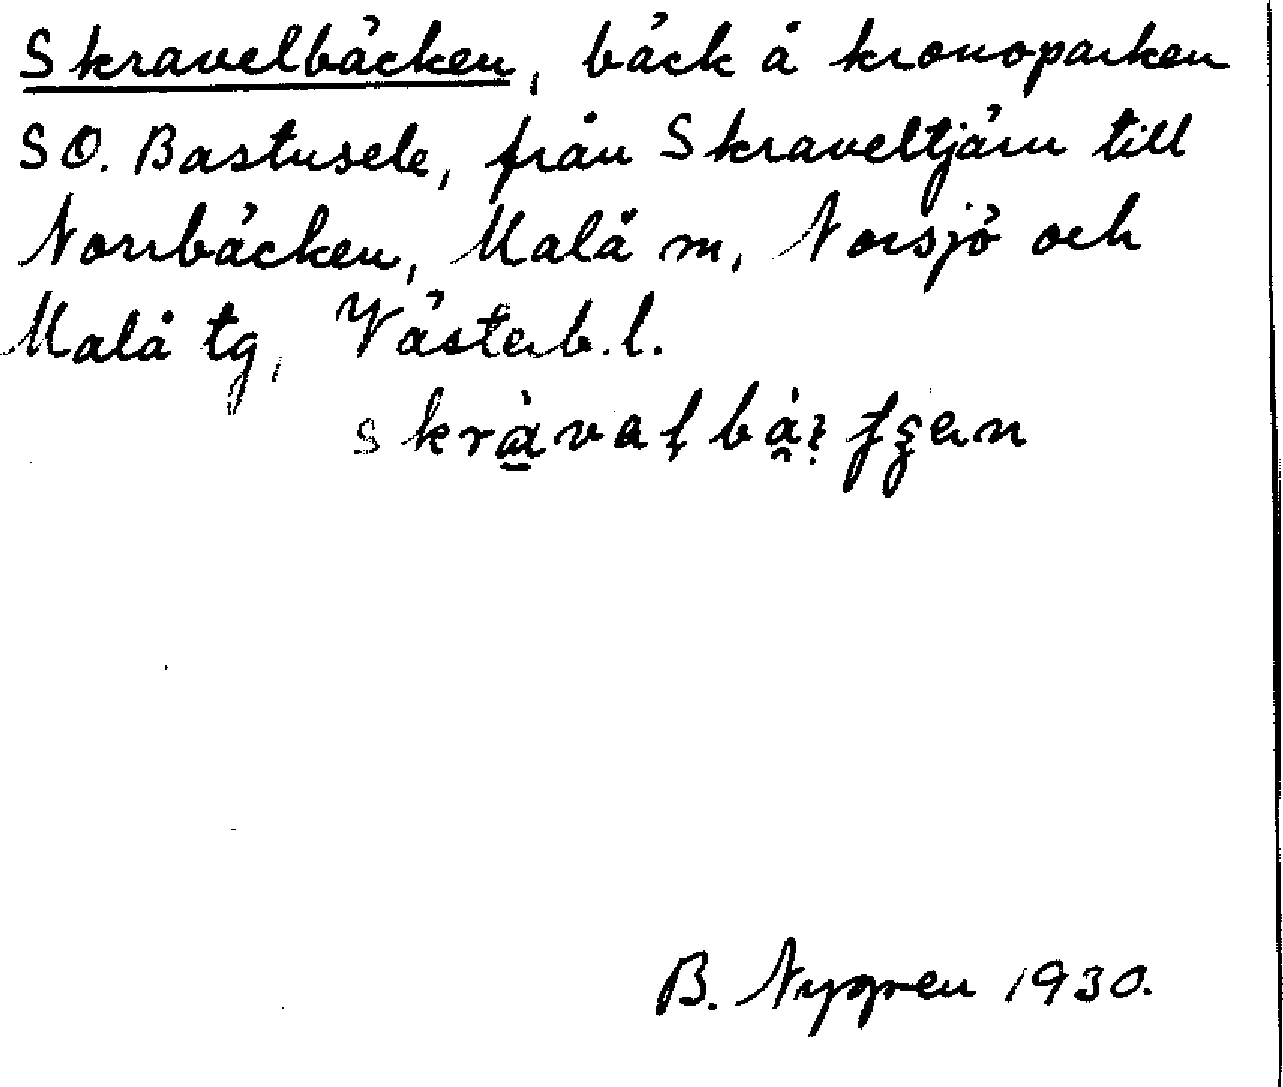 Skravelbäcken, bäck å kronoparken
SO. Bastusele, från Skraveltjärn till
Norrbäcken, Malå m, Norsjö och
Malå tg, Västerb. l.
B. Nygren 1930.